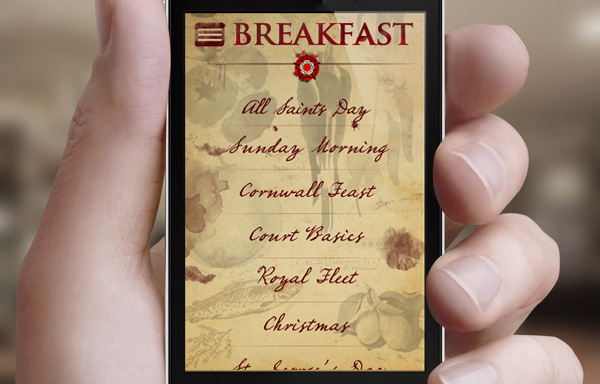 BREAKFAST
All Saints Day
Sunday Morning
Cornwall Feast
Court Basics
Royal Fleet
Christmas